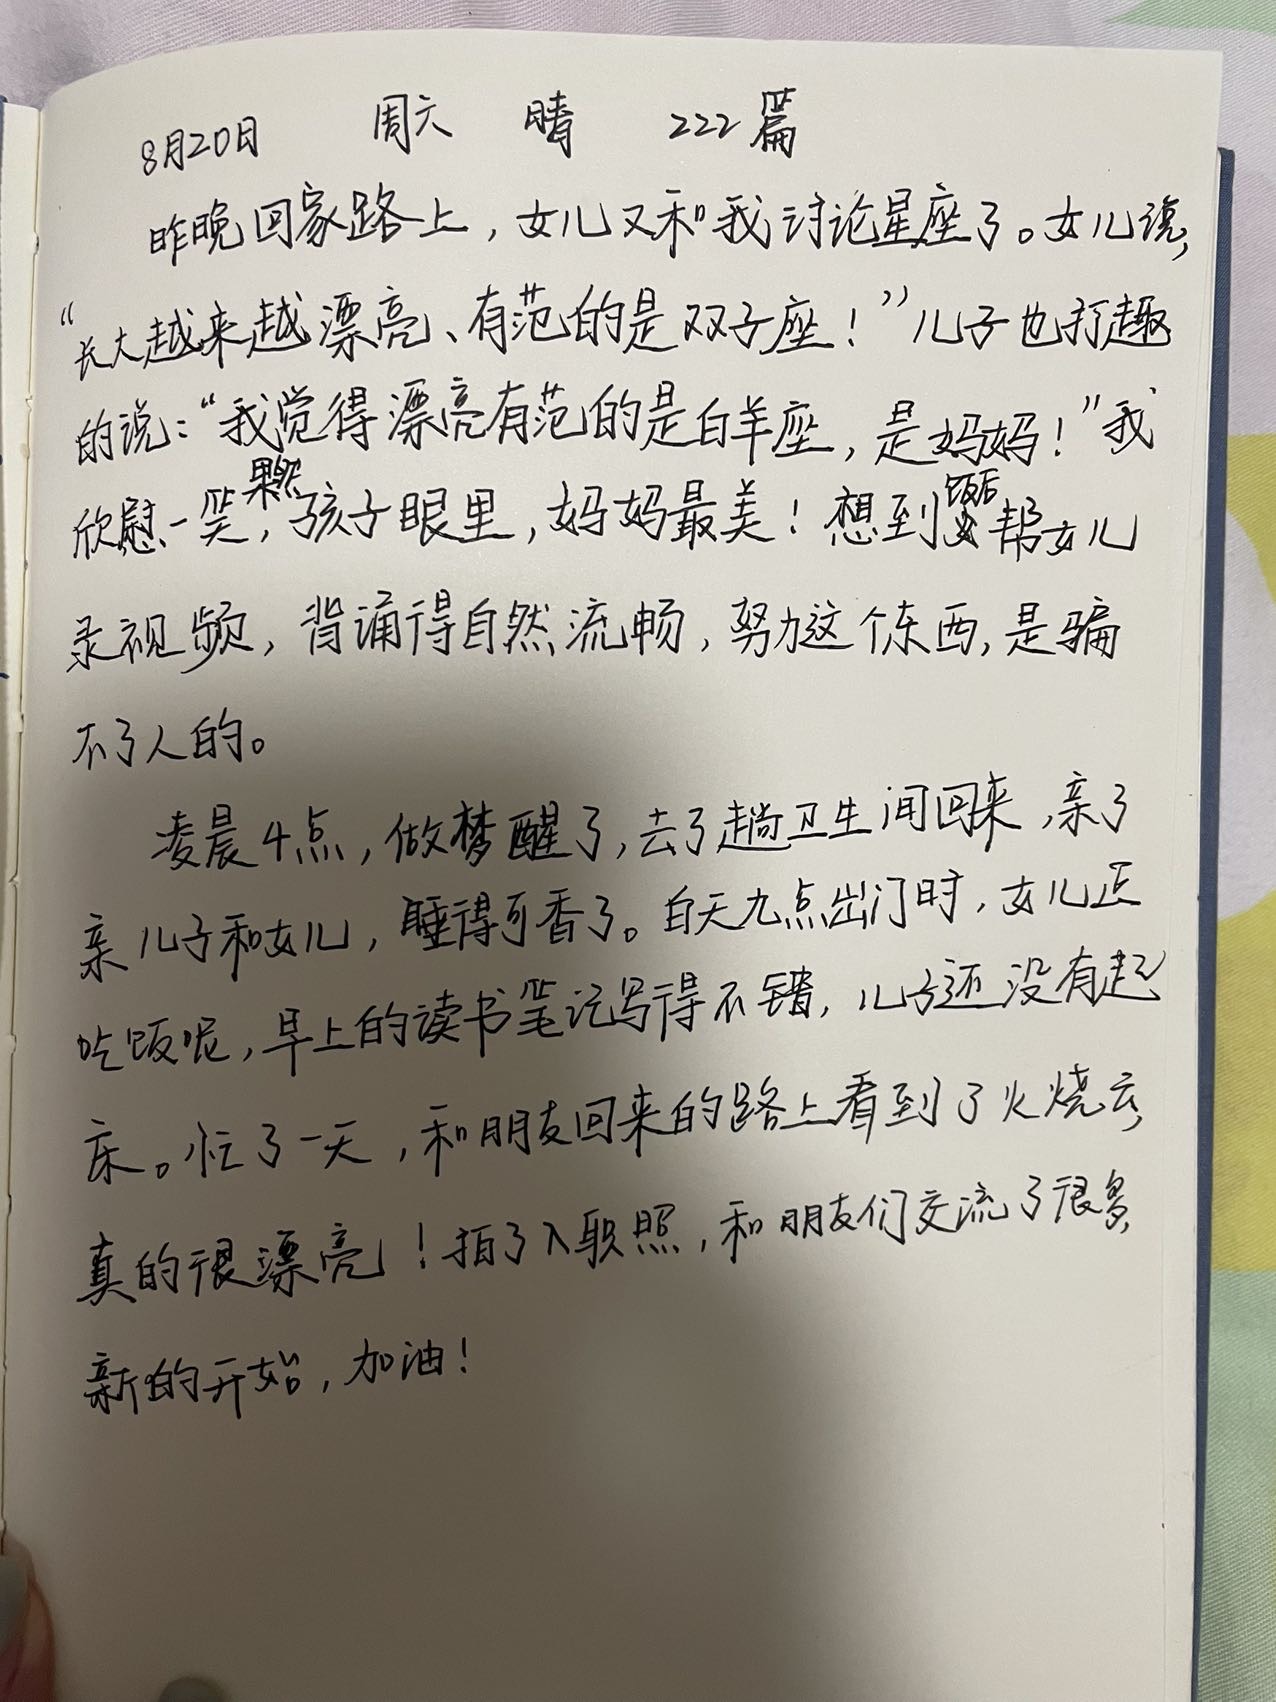 8月20日 周六 晴 222篇
昨晚回家路上，女儿又和我讨论星座了。女儿说，
“长大越来越漂亮、有范的是双子座！”儿子也打趣
的说：“我觉得漂亮有范的是白羊座，是妈妈！”我
欣慰一笑，果然孩子眼里，妈妈最美！想到饭后帮女儿
录视频，背诵得自然流畅，努力这个东西，是骗
不了人的。
凌晨4点，做梦醒了，去了趟卫生间回来，亲了
亲儿子和女儿，睡得可香了。白天九点出门时，女儿正
吃饭呢，早上的读书笔记写得不错，儿子还没有起
床。忙了一天，和朋友回来的路上看到了火烧云，
真的很漂亮！拍了入职照，和朋友们交流了很多，
新的开始，加油！